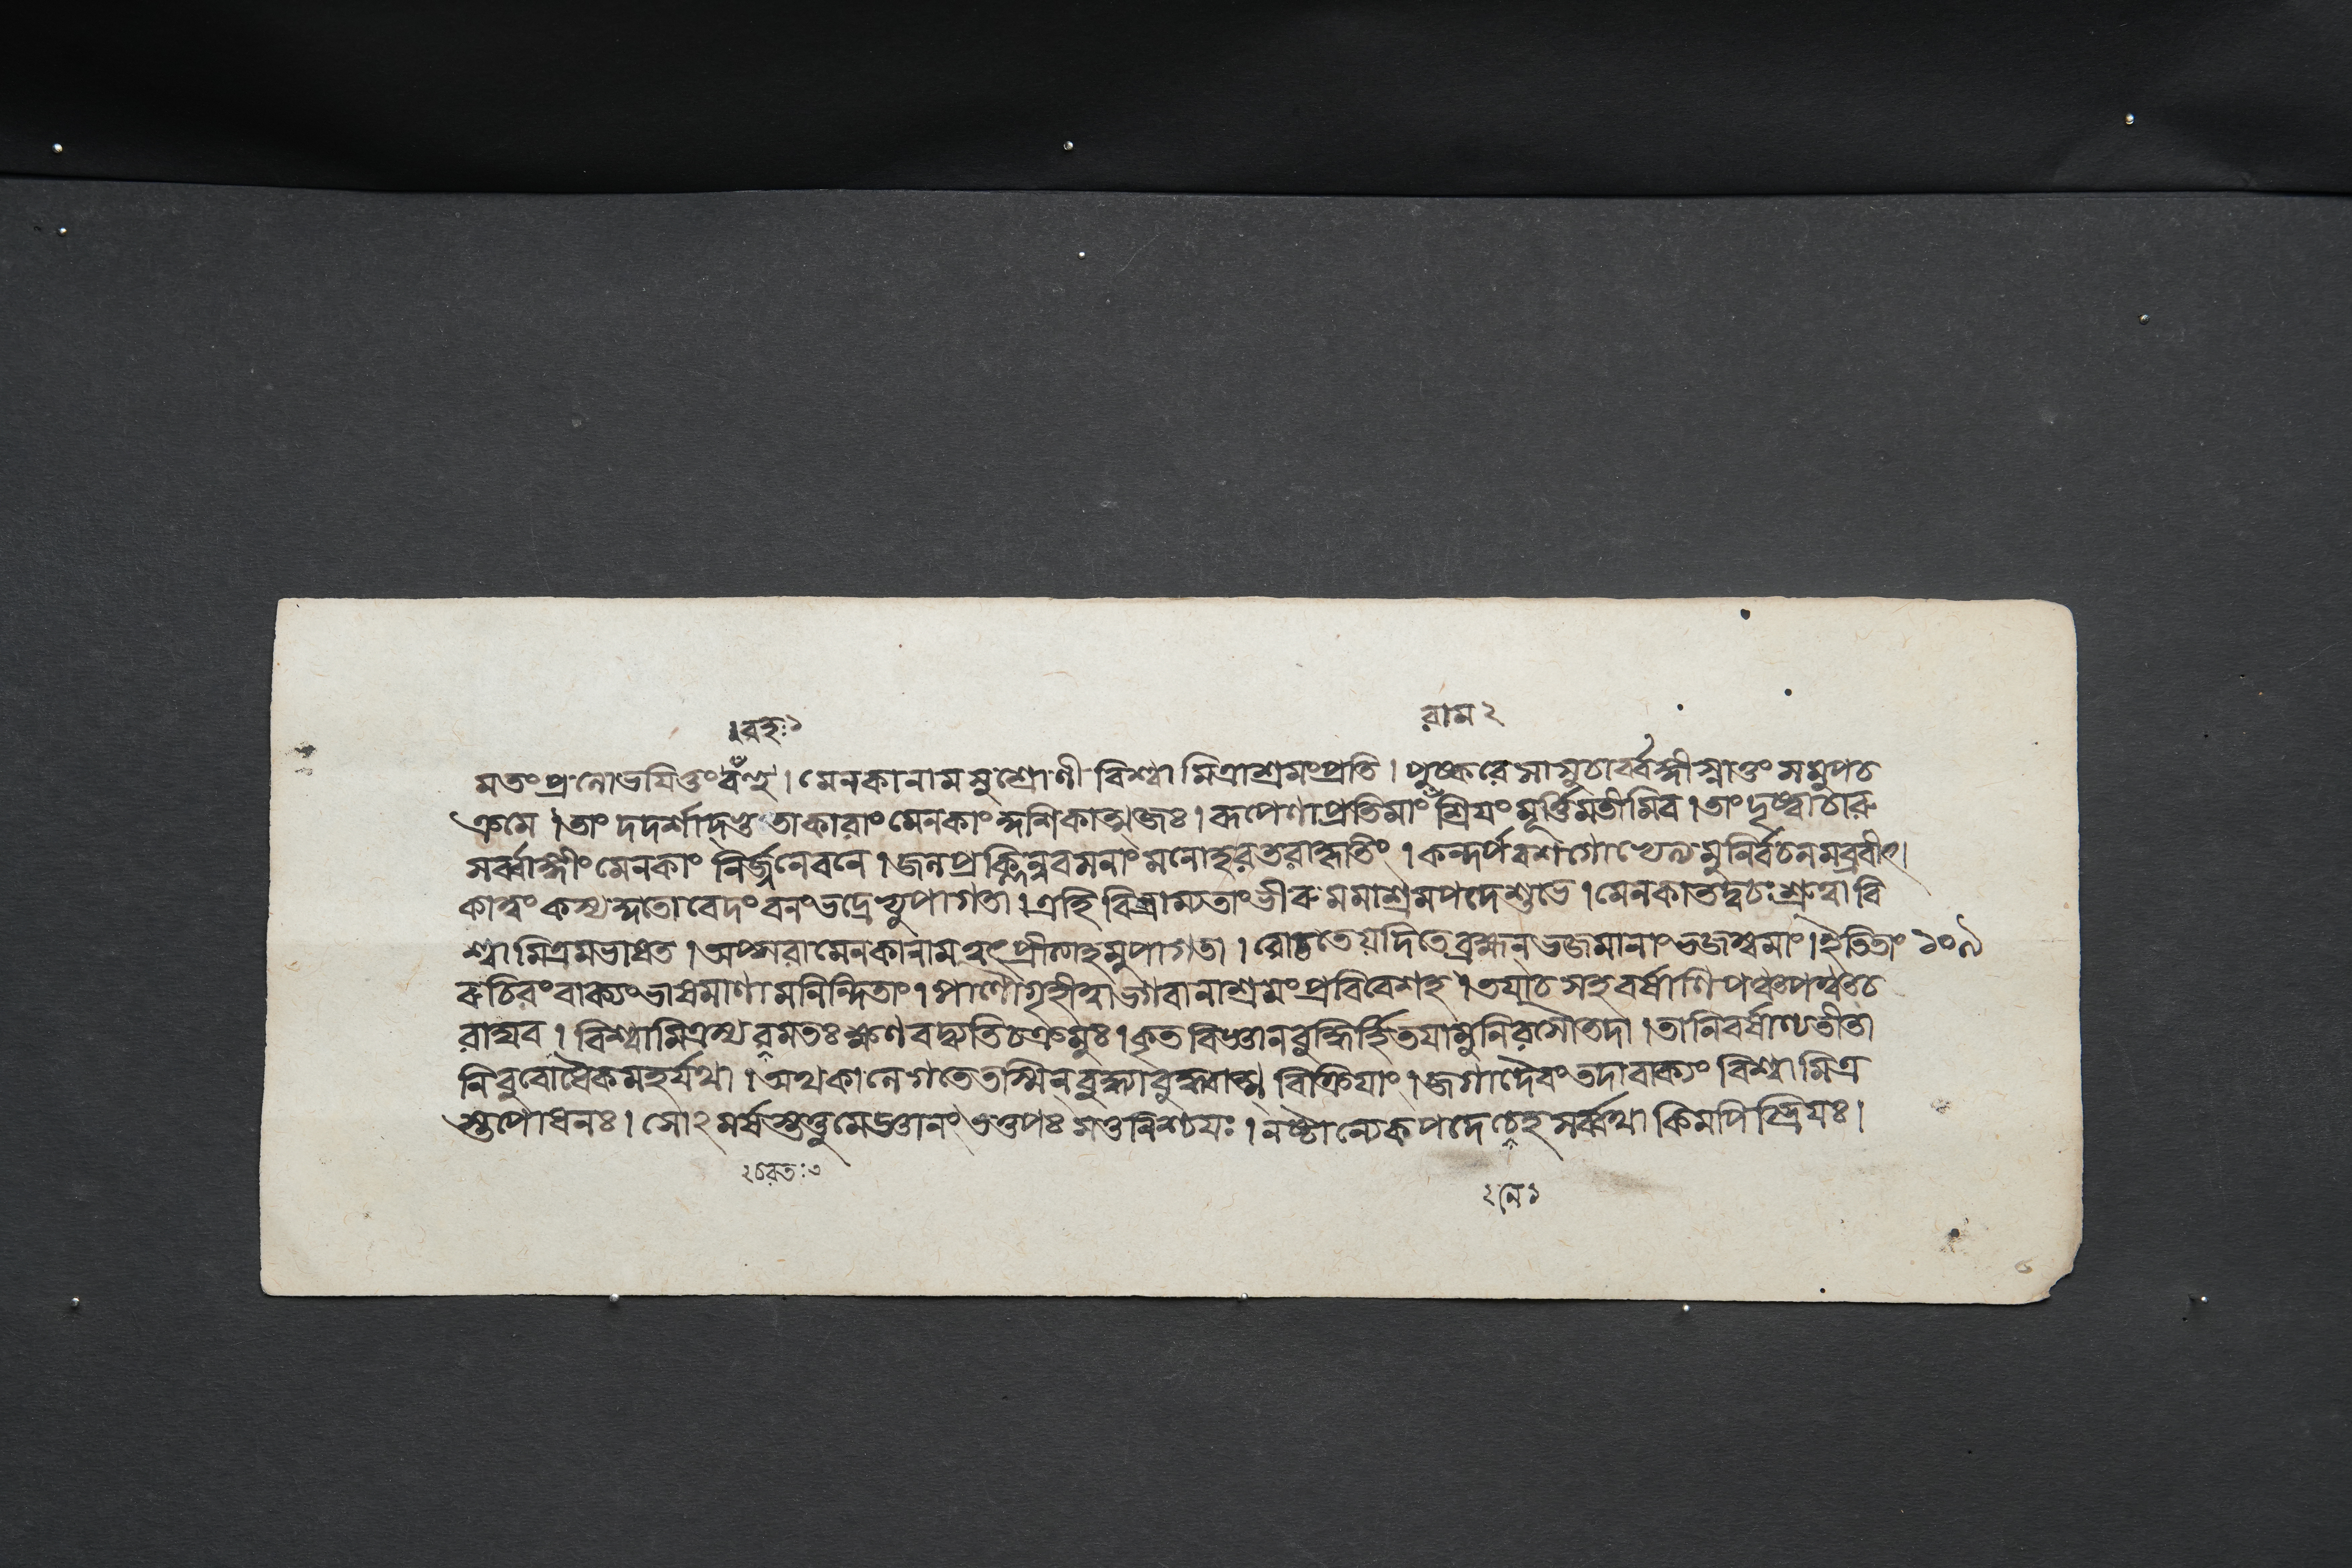 ।রহঃ১
রাম ২
মতং প্রলোভয়িতুং বঁণ্হ । মেনকানাম সুশ্রোণী বিশ্বামিত্রাশ্রমংপ্রতি । পুষ্করে সা সুচার্ব্বঙ্গী স্নাতুং সমুপচ
ক্রমে । তাং দদর্শাদ্ভুতাকারাং মেনকাং কুশিকাত্মজঃ । রূপেণাপ্রতিমাং শ্রিয়ং মূর্ত্তিমতীমিব । তাং দৃষ্ট্বা চারু
সর্ব্বাঙ্গীং মেনকাং নির্জ্জনে বনে । জলপ্রক্লিন্নবসনাং মনোহরতরাকৃতিং । কন্দর্পবশগো মুনির্বচনমব্রবীৎ।
কাত্বং কস্য কুতো বেদং বনং ভদ্রে ভ্যুপাগতা । এহি বিশ্রাম্যতাং ভীরু মমাশ্রমপদে শুভে । মেনকা তদ্বচঃ শ্রুত্বা বি
শ্বামিত্রমভাষত । অপ্সরা মেনকানাম ত্বৎপ্রীত্যাহমুপাগতা । রোচতে যদি তে ব্রহ্মন্ ভজমানাং ভজস্ব মাং । ইতি তাং ১০৯
রুচিরং বাক্যং ভাষমাণামনিন্দিতাং । পাণৌ গৃহীত্বা ভগবানাশ্রমং প্রবিবেশ হ । তয়া চ সহ বর্ষাণি পঞ্চ পঞ্চ চ
রাঘব । বিশ্বামিত্রস্য রমতঃ ক্ষণবদ্ব্যতিচক্রমুঃ । কৃতবিজ্ঞানবুদ্ধির্হি তয়া মুনিরসৌ তদা । তানি বর্ষাণ্যতীতা
নি বুবোধৈকমহর্যথা । অথ কালে গতে তস্মিন্ বুদ্ধ্যা বুদ্ধ্বাত্ম বিক্রিয়াং । জগাদৈবং তদা বাক্যং বিশ্বামিত্র
স্তপোধনঃ । তত্তু মে জ্ঞানং তত্তপঃ সতু নিশ্চয়ঃ । নষ্টান্যেকপদে হ সর্ব্বথা কিমপি স্ত্রিয়ঃ ।
২চরতঃ৩
২নে১